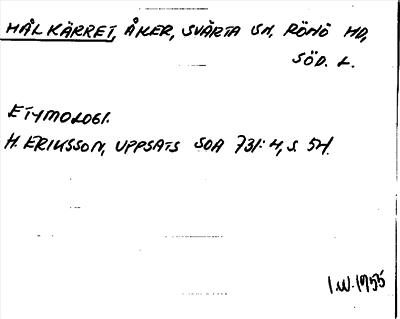 HÅLKÄRRET, ÅKER, SVÄRTA SN, RÖNÖ HD,
SÖD. L.
ETYMOLOGI.
H. ERIKSSON, UPPSATS SOA 731:4, S. 54.
I.W. 1955